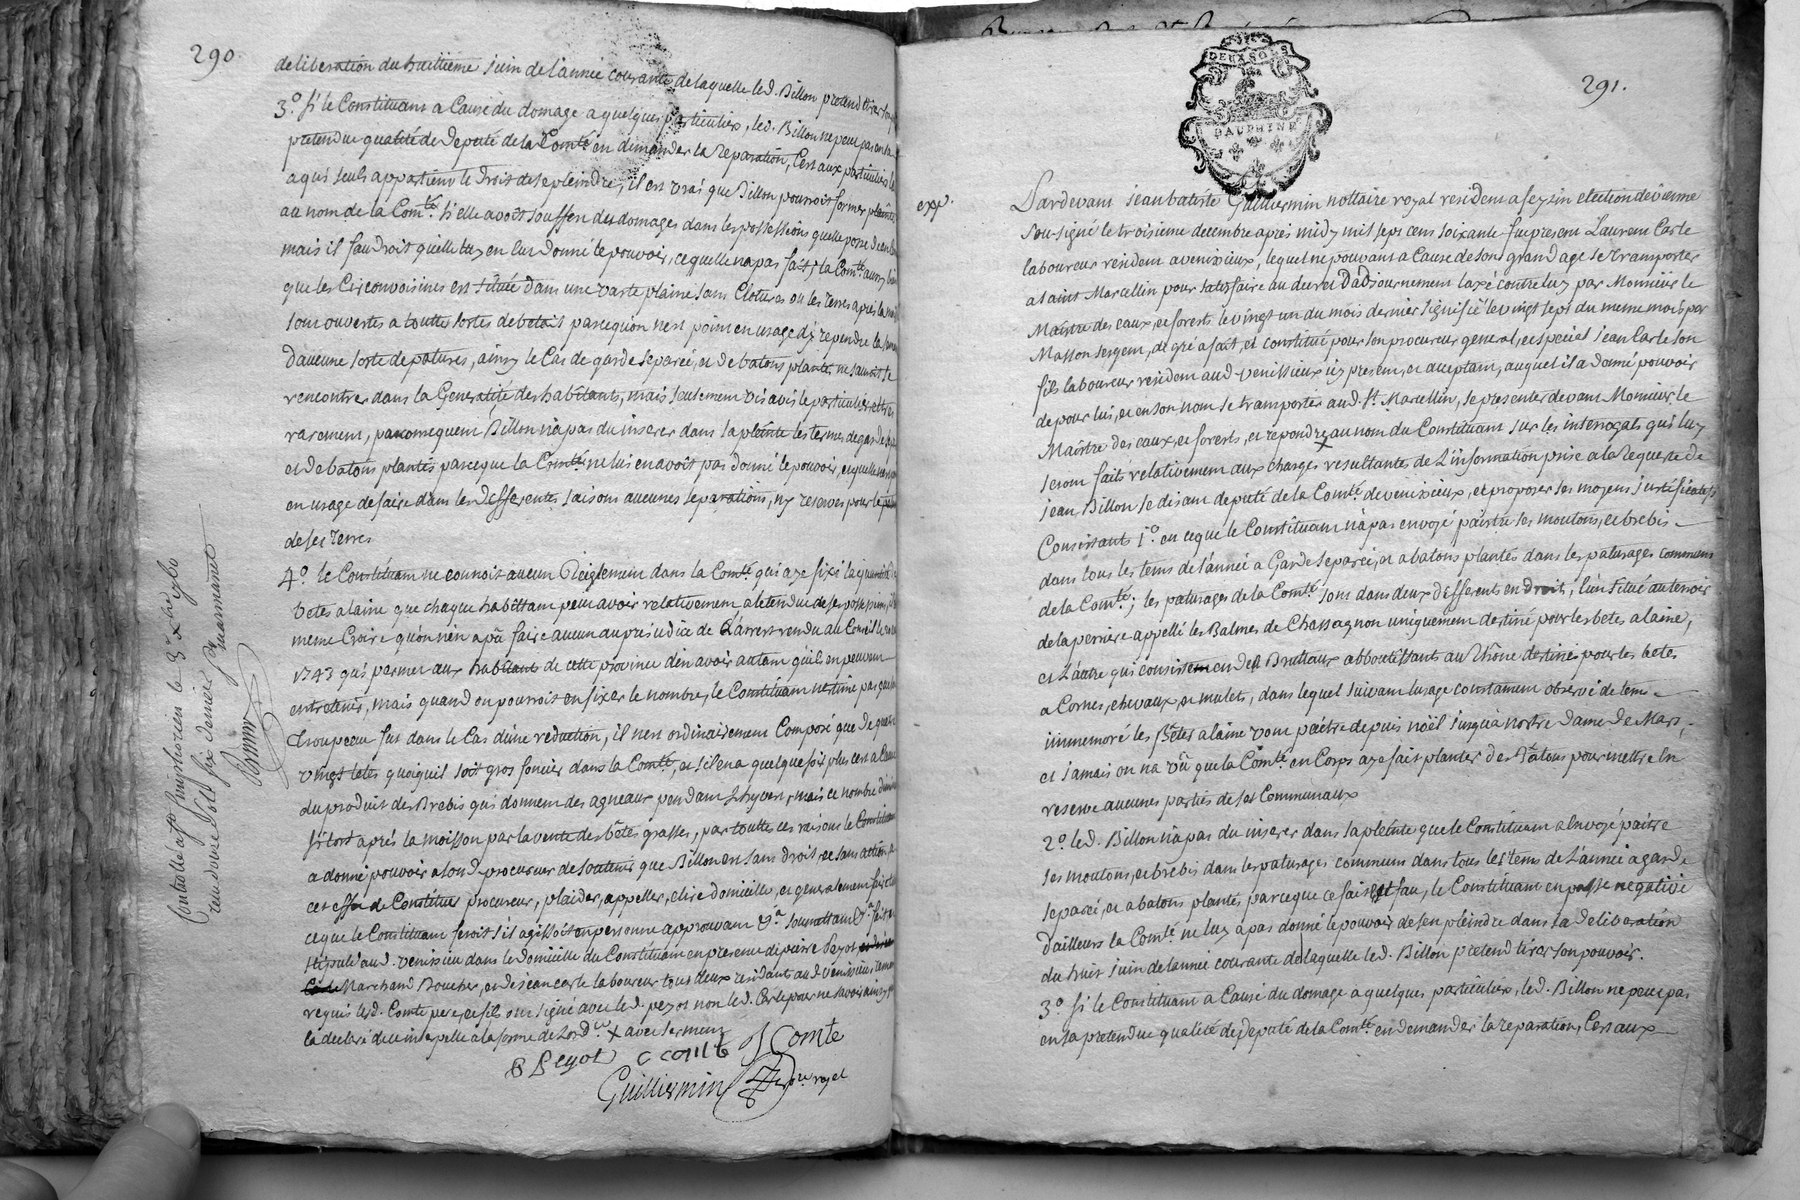 290.
deliberation du huittieme juin de l'année courante de laquelle led. Billon pretend tirer
3.° si le Constituant a Causé du domage a quelques particuliers, led. Billon ne peut pas en sa
pretendue qualité de Deputé de la Comté en demander la reparation, C'est aux particuliers
a qui seuls appartient le droit de se pleindre, il est vrai que Billon pourroit former plainte
au nom de la Comté. si elle avoit souffert du domages dans les possessions quelle
mais il faudroit quelle luy en eut donné le pouvoir, ce quelle na pas fait; la Comté
que les Circonvoisines est située dans une vaste plaine sans Clotures ou les terres après la
sont ouvertes a toutte sortes de betail parce qu'on n'est point en usage d'y
d'aucune sorte de patures, ainsy le Cas de garde separée, et de batons plantés ne sauroit se
rencontrer dans la Generalité des habitants, mais seulement vis a vis le particulier
rarement, par consequent Billon n'a pas du inserer dans sa pleinte les termes de garde
et de batons plantés parce que la Comté ne lui en avoit pas donné le pouvoir, et quelle
en usage de faire dans les differentes saisons aucunes separations, ny reserves pour le
de ses Terres
4.° le Constituant ne connoit aucun Reiglement dans la Comté qui aye fixé la quantité
betes a laine que chaque habittant peut avoir relativement a letendue de ses possessions,
meme Croire qu'on n'en a pû faire aucun au prejudice de L'arrest rendu au Conseil
1743 qui permet aux habitants de cette province d'en avoir autant qu'ils en peuvent
entretenir, mais quand on pourroit en fixer le nombre, le Constituant n'estime pas que
troupeau fut dans le Cas d'une reduction, il n'est ordinairement Composé que de quatre
vingt betes quoiquil soit gros foncier dans la Comté, et s'il en a quelque fois plus cest a Cause
du produit des Brebis qui donnent des agneaux pendant L'hyver, mais ce nombre
si tost aprés la moisson par la vente des bêtes grasses, par touttes ces raisons le Constituant
a donné pouvoir a sond. procureur de soutenir que Billon est sans droit et sans action,
cet effet de Constituer procureur, plaider, appeller, elire domicille, et generalement faire
ce que le Constituant feroit s'il agissoit en personne approuvant &.a soumettant &.a fait et
stipulé aud. venisieu dans le domicille du Constituant en presence de pierre Peyot
Marchand Boucher, et de jean carle laboureur tous deux residants aud. venissieux
requis led. Comte pere, et fils ont signé avec led. peyot non led. Carle pour ne savoir ainsy
la declaré de ce interpellé a la forme de Lord.ce x avec serment
P Peyot C comte J Comte
Guilliermin no.re royal
Controllé a St Simphorien le 3e xbre 1760
reçu douze sols six deniers
291.
DEUX SOLS
DAUPHINE
exp.
Pardevant jean batiste Guilliermin nottaire royal resident a feyzin election de vienne
sousigné le troisieme decembre aprés midy mil sept cens soixante fut present Laurent Carle
laboureur resident a venixieux, lequel ne pouvant a Cause de son grand age se transporter
a saint Marcellin pour satisfaire au decret Dadjournement laxé contre luy par Monsieur le
Maitre des eaux, et forests le vingt un du mois dernier signifié le vingt sept du meme mois par
Masson sergent, de gré a fait, et constitué pour son procureur general, et special jean Carle son
fils laboureur resident aud. venissieux icy present, et acceptant, auquel il a donné pouvoir
de pour lui, et en son nom se transporter aud. St. Marcellin, se presenter devant Monsieur le
Maitre des eaux, et forests, et repondre au nom du Constituant sur les interrogats qui luy
seront faits relativement aux charges resultantes de L'information prise a la Requete de
jean Billon se disant deputé de la Comté de venixieux, et proposer ses moyens justificatifs
Consistants 1.° en ce que le Constituant n'a pas envoyé paitre ses moutons, et brebis
dans tous les tems de l'année a Garde separée, et a batons plantés dans les paturages communs
de la Comté; les paturages de la Comté sont dans deux differents endroit, l'un situé au terroir
de la perriere appellé les Balmes de Chassagnon uniquement destiné pour les betes a laine,
et L'autre qui consistent en des Brotteaux abboutissants au Rhône destinés pour les betes
a Cornes, chevaux, et mulets, dans lequel suivant lusage constament observé de tems
immemoré les Bêtes a laine vont paitre depuis noël jusqu'a nostre dame de Mars,
et jamais on n'a vû que la Comté en Corps aye fait planter des Batons pour mettre en
reserve aucunes parties de ses Communaux
2.° led. Billon n'a pas du inserer dans sa pleinte que le Constituant a Envoyé paitre
ses moutons, et brebis dans les paturages communs dans tous les tems de L'année a garde
separée, et a batons plantés parce que ce fait est faux, le Constituant en passe negative
d'ailleurs la Comté ne luy a pas donné le pouvoir de s'en pleindre dans sa deliberation
du huit juin de lannée courante de laquelle led. Billon pretend tirer son pouvoir.
3.° si le Constituant a Causé du domage a quelques particuliers, led. Billon ne peut pas
en sa pretendue qualité de deputé de la Comté en demander la reparation, Cest aux